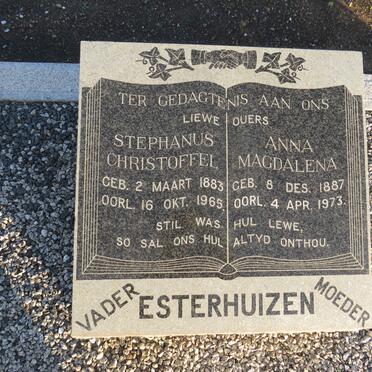 TER GEDAGTENIS AAN ONS
LIEWE OUERS
STEPHANUS
CHRISTOFFEL
GEB. 2 MAART 1883
OORL. 16 OKT. 1965
ANNA
MAGDALENA
GEB. 8 DES. 1887
OORL. 4 APR. 1973.
STIL WAS HUL LEWE,
SO SAL ONS HUL ALTYD ONTHOU.
VADER ESTERHUIZEN MOEDER